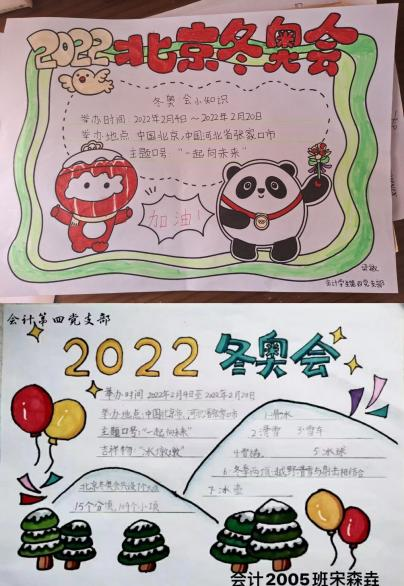 2022北京冬奥会
冬奥会小知识
举办时间:2022年2月4号~2022年2月20号
举办地点:中国北京,中国河北省张家口市
主题口号:“一起向未来”
加油!
会计学生第四党支部
会计第四党支部
2022 冬奥会
举办时间 2022年2月4日至2022年2月20日
举办地点:中国北京市、河北省张家口市
主题口号:“一起向未来”
吉祥物:“冰墩墩”
1.滑冰
2.滑雪 3.雪车
4.雪橇 5.冰球
6.冬季两项:越野滑雪与射击相结合
7.冰壶
北京冬奥会共设7个大项
15个分项,109个小项
会计2005班宋森垚